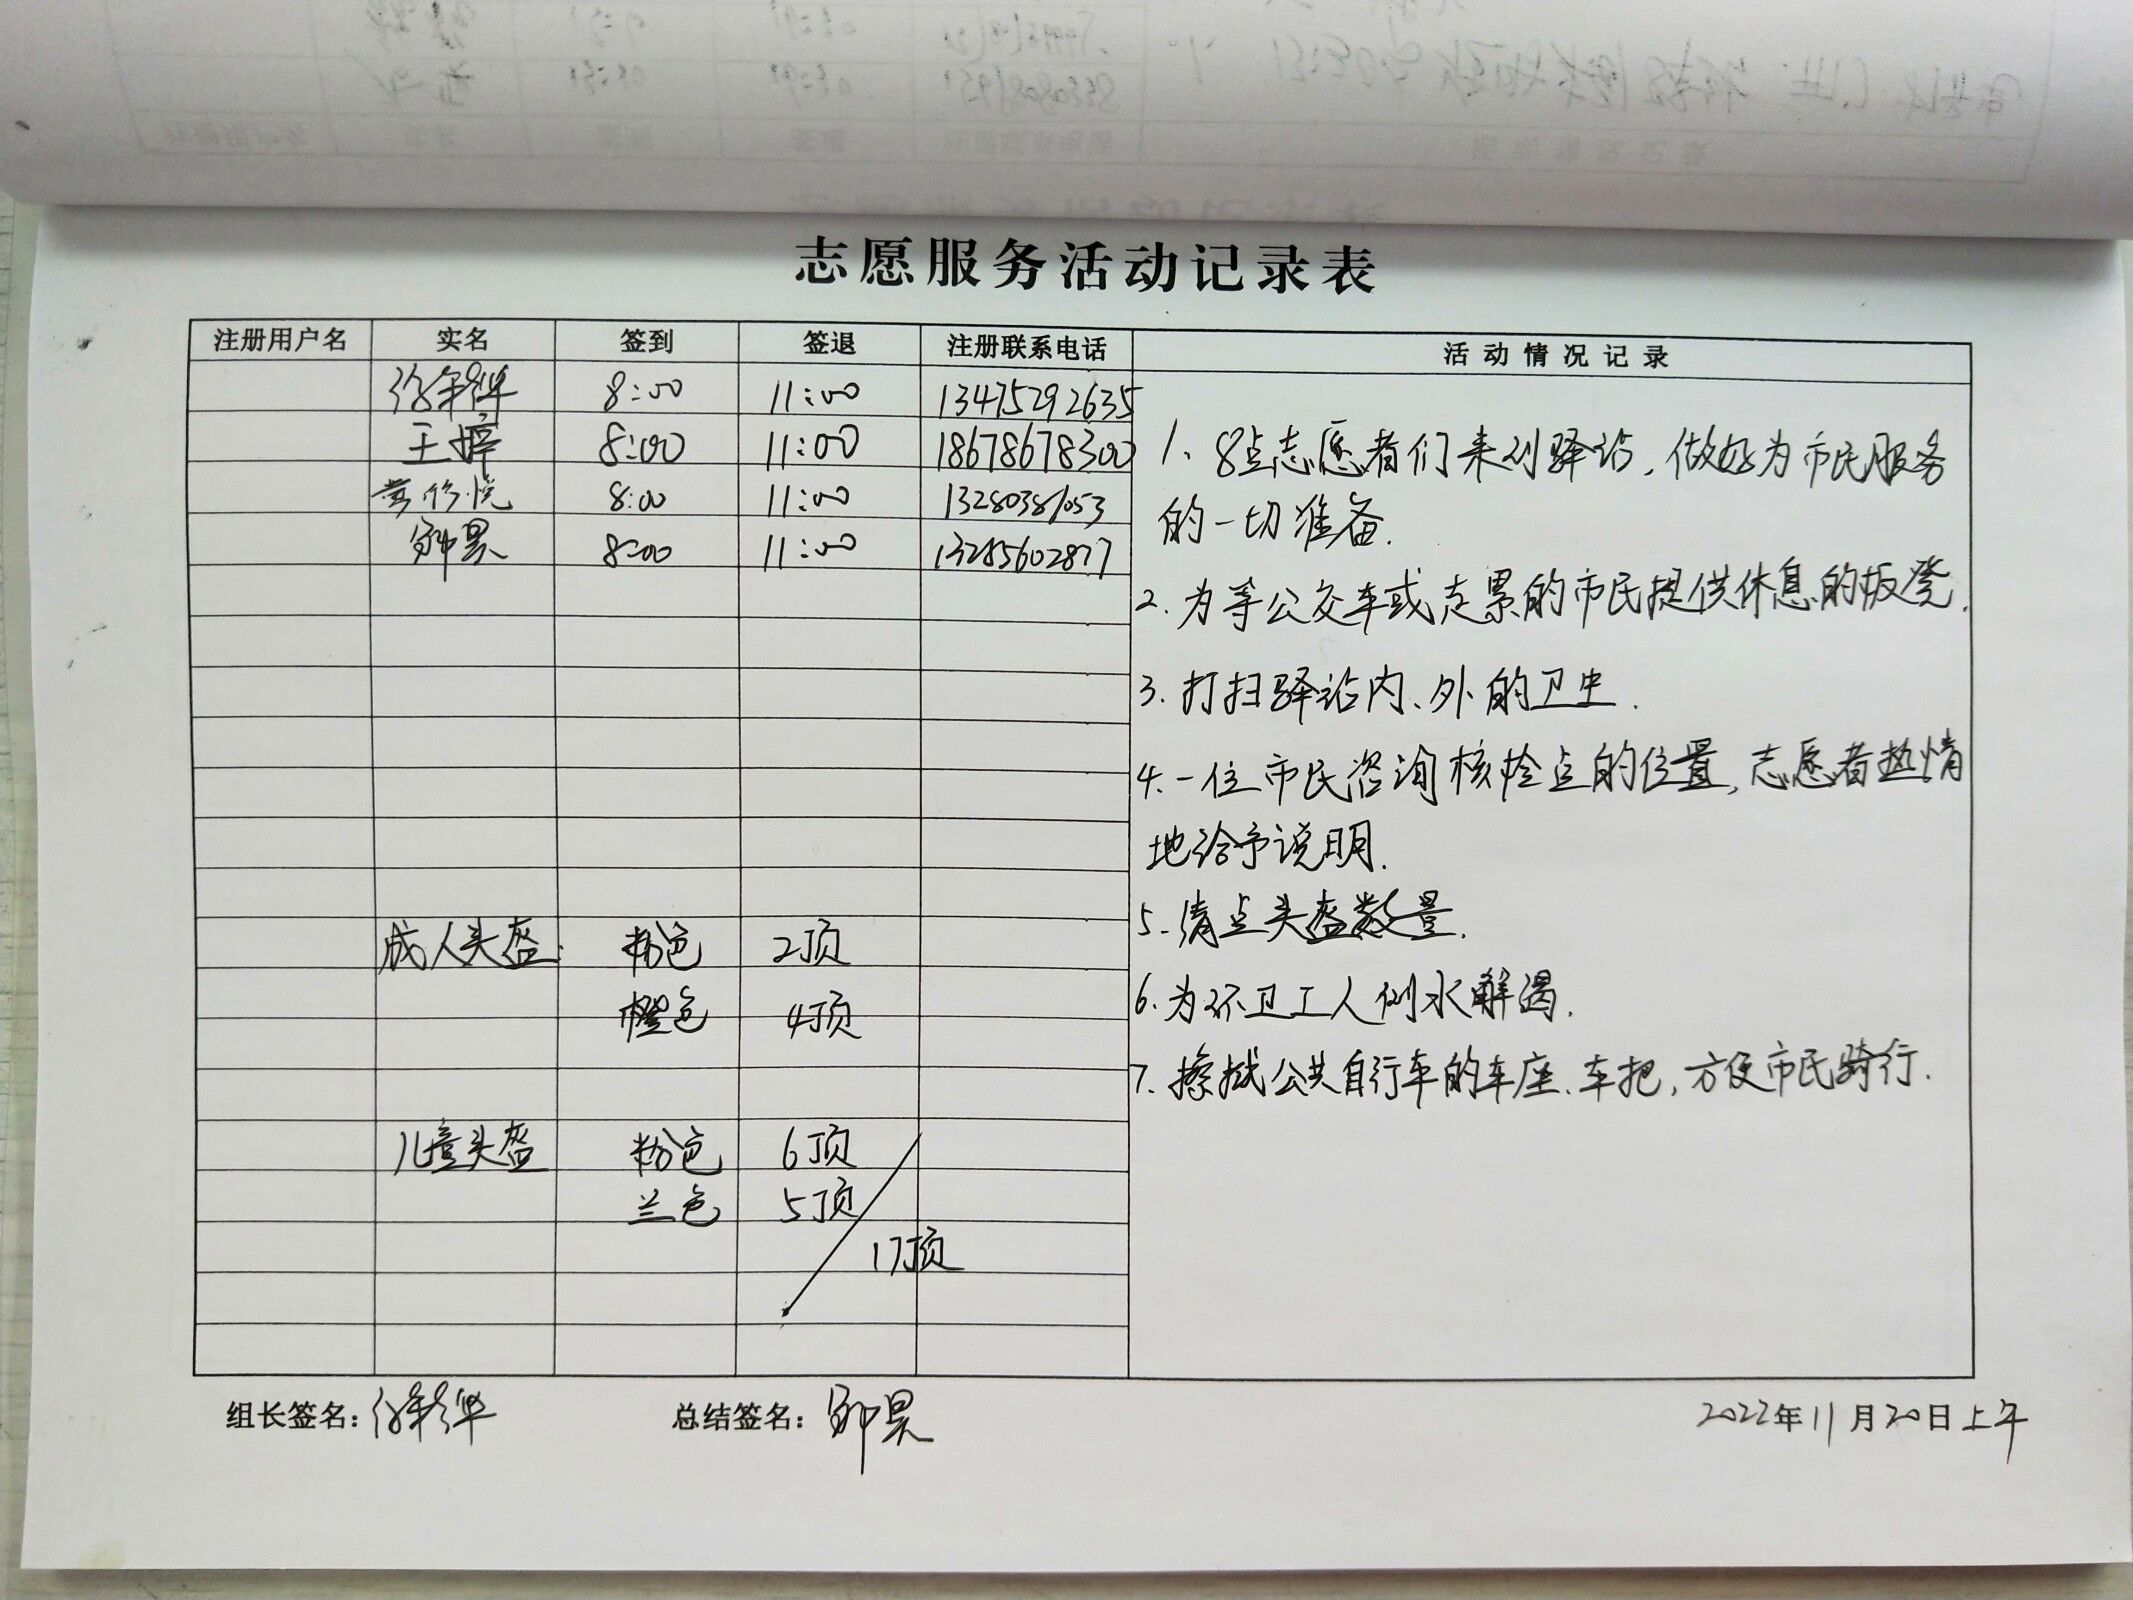 志愿服务活动记录表
注册用户名 实名 签到 签退 注册联系电话 活动情况记录
8:00 11:00 13475292635
王婷 8:00 11:00 18678678300
8:00 11:00 13280381053
8:00 11:00 13285602877
1、8点志愿者们来到驿站,做好为市民服务
的一切准备.
2.为等公交车或走累的市民提供休息的板凳.
3.打扫驿站内、外的卫生.
4.一位市民咨询核检点的位置,志愿者热情
地给予说明.
5.清点头盔数量.
6.为环卫工人倒水解渴.
7.擦拭公共自行车的车座、车把,方便市民骑行.
成人头盔: 粉色 2顶
橙色 4顶
儿童头盔 粉色 6顶
兰色 5顶
17顶
组长签名: 总结签名: 2022年11月20日上午